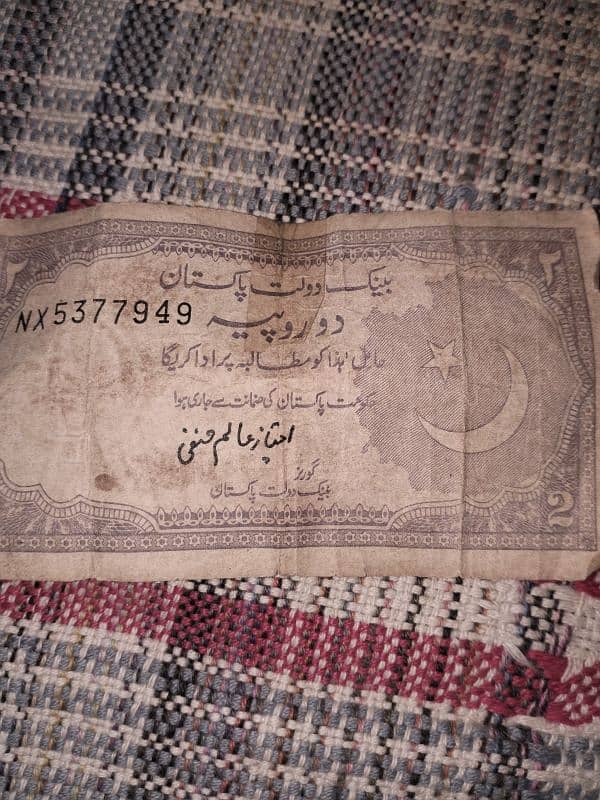 ۲ ۲
بینک دولت پاکستان
NX5377949
دو روپیہ
حامل ہٰذا کو مطالبہ پر ادا کریگا
حکومت پاکستان کی ضمانت سے جاری ہوا
امتیاز عالم حنفی
گورنر
بینک دولت پاکستان
2